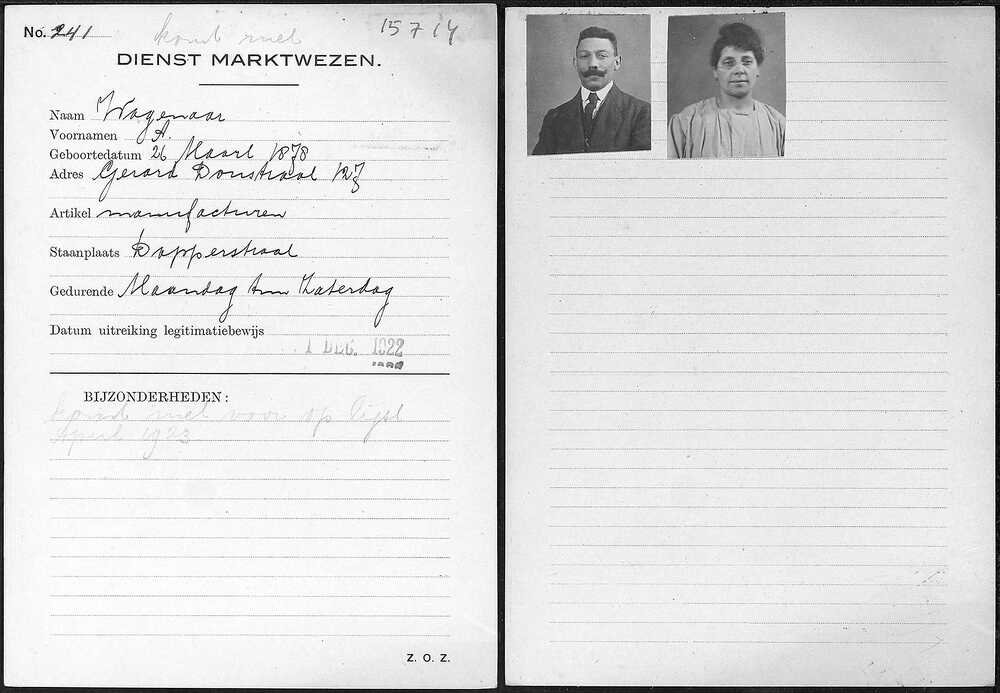 No. 241
komt niet
15 7 14
DIENST MARKTWEZEN.
Naam Wagenaar
Voornamen A.
Geboortedatum 26 Maart 1878
Adres Gerard Doustraat 127
Artikel manufacturen
Staanplaats Dapperstraat
Gedurende Maandag t/m Zaterdag
Datum uitreiking legitimatiebewijs
1 DEC. 1922
BIJZONDERHEDEN:
komt niet voor op lijst
April 1923
Z. O. Z.